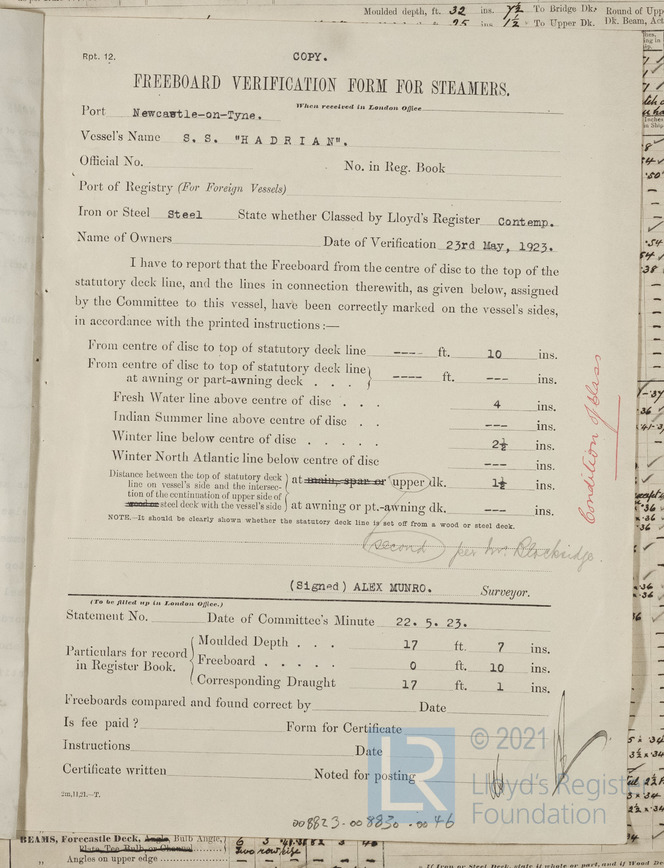 Moulded depth, ft. 32 ins. 7½ To Bridge Dk. Round of Upp
ins. 1½ To Upper Dk. Dk. Beam, Act
Rpt. 12.
COPY.
FREEBOARD VERIFICATION FORM FOR STEAMERS.
When received in London Office
Port Newcastle-on-Tyne.
Vessel's Name S. S. "H A D R I A N".
Official No. No. in Reg. Book
Port of Registry (For Foreign Vessels)
Iron or Steel Steel State whether Classed by Lloyd's Register Contemp.
Name of Owners Date of Verification 23rd May, 1923.
I have to report that the Freeboard from the centre of disc to the top of the
statutory deck line, and the lines in connection therewith, as given below, assigned
by the Committee to this vessel, have been correctly marked on the vessel's sides,
in accordance with the printed instructions :—
From centre of disc to top of statutory deck line ---- ft. 10 ins.
From centre of disc to top of statutory deck line
at awning or part-awning deck . . . ---- ft. --- ins.
Fresh Water line above centre of disc . . 4 ins.
Indian Summer line above centre of disc . . --- ins.
Winter line below centre of disc . . . . . 2½ ins.
Winter North Atlantic line below centre of disc --- ins.
Distance between the top of statutory deck
line on vessel's side and the intersec-
tion of the continuation of upper side of
wood or steel deck with the vessel's side
at main, spar or upper dk. 1½ ins.
at awning or pt.-awning dk. --- ins.
NOTE.—It should be clearly shown whether the statutory deck line is set off from a wood or steel deck.
second per Mr. Blockridge.
Condition of Class
(Signed) ALEX MUNRO. Surveyor.
(To be filled up in London Office.)
Statement No. Date of Committee's Minute 22. 5. 23.
Particulars for record
in Register Book.
Moulded Depth . . . 17 ft. 7 ins.
Freeboard . . . . . 0 ft. 10 ins.
Corresponding Draught 17 ft. 1 ins.
Freeboards compared and found correct by Date
Is fee paid ? Form for Certificate
Instructions Date
Certificate written Noted for posting
2m,11,21.—T.
© 2021
LR
Lloyd's Register
Foundation
008823-008830-0046
BEAMS, Forecastle Deck, Angle, Bulb Angle,
Plate, Tee Bulb, or Channel
Angles on upper edge
If Iron or Steel Deck, state if whole or part, and if Wood De